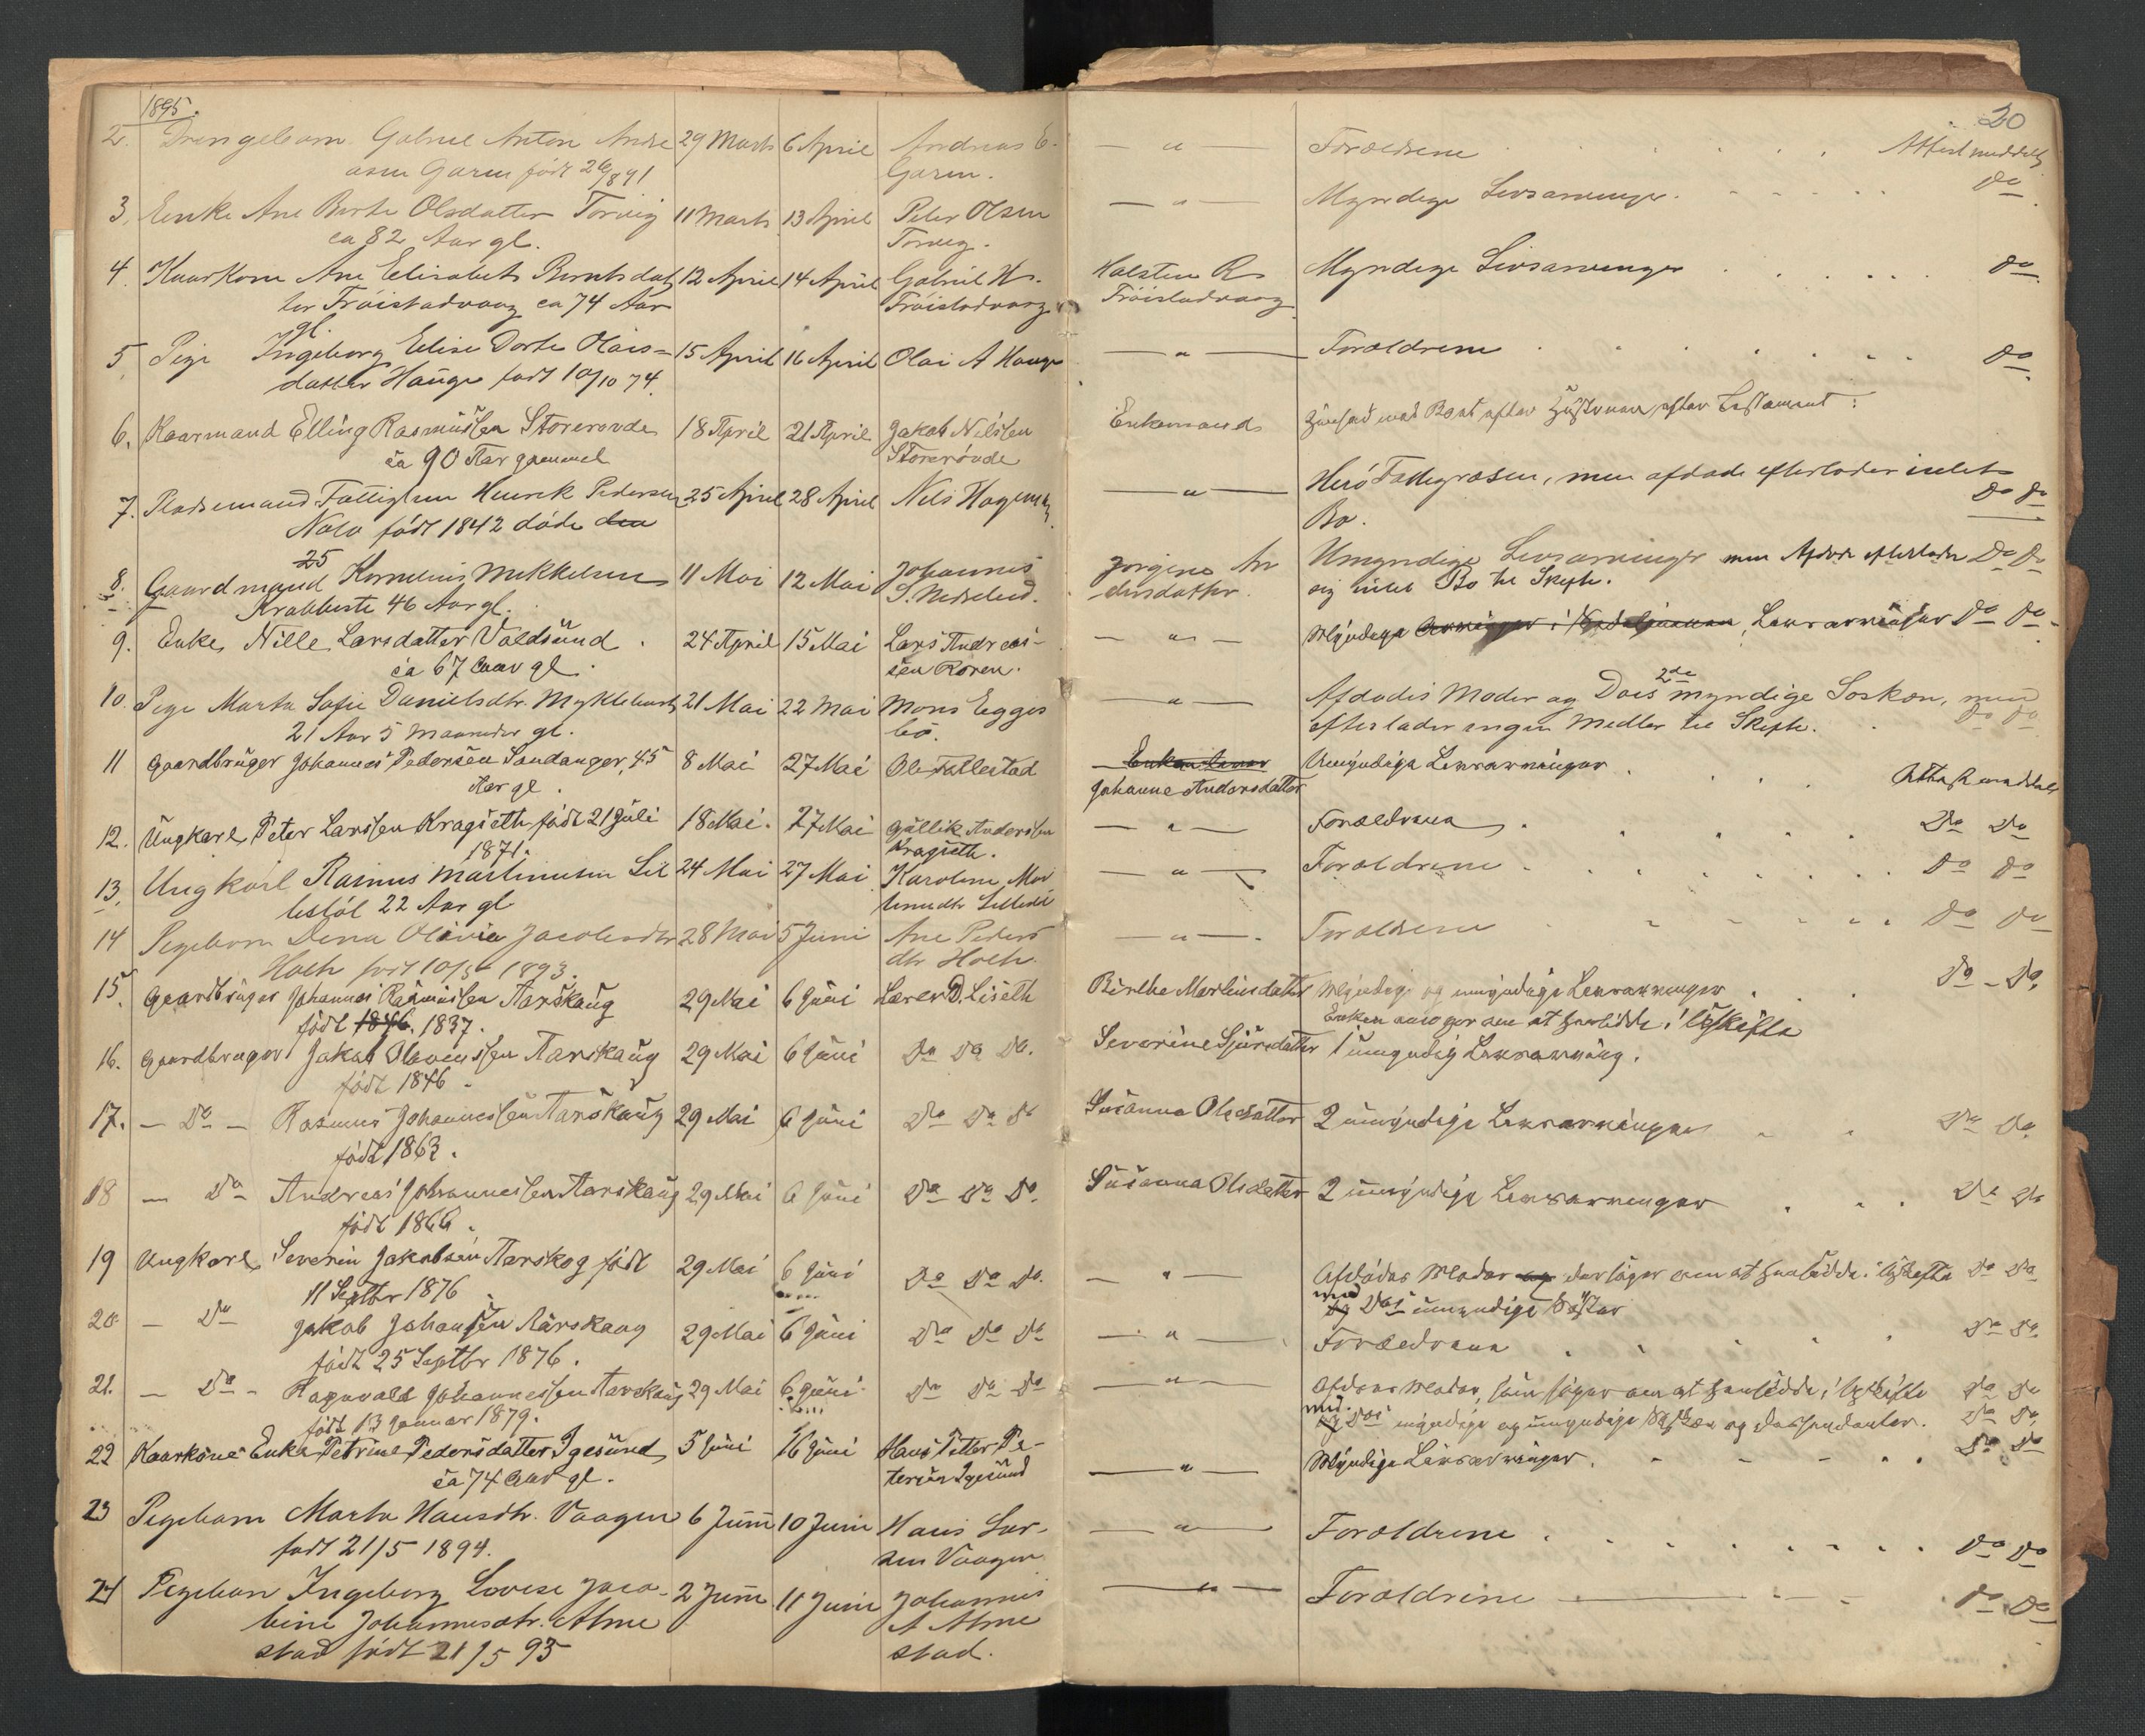 1895.
20
2. Drengebarn Gabriel Anton Andre 29 Marts 6 April Andreas E. — " — Forældrene Attest meddelt
asen Garen født 26/ 1891 Garen.
3. Enke Ane Berte Olsdatter Torvig 11 Marts 13 April Peter Olsen — " — Myndige Livsarvinger. do
ca 82 Aar gl. Torvig.
4. Kaarkone Ane Elisabet Berntsdat 12 April 14 April Gabriel H. Halsten R. Myndige Livsarvinger do
ter Frøistadvaag ca 74 Aar Frøistadvaag Frøistadvaag
gl.
5 Pige Ingeborg Elise Dorte Olais= 15 April 16 April Olai A Hauge — " — Forældrene do
datter Hauge født 10/10 74.
6. Kaarmand Elling Rasmussen Storerøvde 18 April 21 April Jakob Nilssen Enkemand efter Testament:
ca 90 Aar gammel Storerøvde
7. Pladsemand Fattiglem Henrik Pedersen 25 April 28 April Nils Hagen — " — Herø Fattigvæsen, men afdøde efterlader intet
født 1842 døde den Bo. do do
25
8. Gaardmand Kornelius Mikkelsen 11 Mai 12 Mai Johannes Jørgine An Umyndige Livsarvinger men Afdøde efterlader do do
46 Aar gl. dersdatter. sig intet Bo til Skifte.
9. Enke Nille Larsdatter Voldsund 24 April 15 Mai Lars Andreas- — " — Myndige Livsarvinger do do
ca 67 Aar gl. sen Roren.
10. Pige Marta Sofie Danielsdtr. Myklebust 21 Mai 22 Mai Mons Eggis — " — Afdødes Moder og Dois 2de myndige Søsken, men
21 Aar 5 Maaneder gl. bø. efterlader ingen Midler til Skifte. do do
11 Gaardbruger Johannes Pedersen Sandanger, 45 8 Mai 27 Mai Ole Tallestad Umyndige Livsarvinger Attest meddelt
Aar gl. Johanne Andersdatter
12. Ungkarl Peter Larssen Kragseth født 21 Juli 18 Mai. 27 Mai Gullik Anderssen — " — Forældrene do do
1871. Kragseth.
13. Ungkarl Rasmus Martinusen Lil 24 Mai 27 Mai Karoline Mar — " — Forældrene do do
lestøl 22 Aar gl tinusdtr
14 Pigebarn Dena Olivia Jacobsdtr 28 Mai 5 Juni Ane Peders — " — Forældrene do do
født 1893. dtr
15. Gaardbruger Johannes Rasmussen Aarskaug 29 Mai 6 Juni Laren D. Liseth Birthe Martinsdatter Myndige og umyndige Livsarvinger do - do
født 1846. 1837. Enken søger om at hensidde i Uskifte
16. Gaardbruger Jakob Olavessen Aarskaug 29 Mai 6 Juni do do do. Severine Sjursdatter 1 umyndig Livsarving.
født 1846
17. — do — Rasmus Johannessen Aarskaug 29 Mai 6 Juni do do do Susanna Olsdatter 2 umyndige Livsarvinger do do
født 1863.
18 — do Andreas Johannessen Aarskaug 29 Mai 6 Juni do do do. Susanna Olsdatter 2 umyndige Livsarvinger do do
født 1866.
19 Ungkarl Severin Jakobsen Aarskog født 29 Mai 6 Juni do do do. — " — Afdødes Moder og der søger om at hensidde i Uskifte do do
11 Septbr 1876 med
og Dois umyndige Søster
20. — do Jakob Johansen Aarskaug 29 Mai 6 Juni do do do — " — Forældrene do do
født 25 Septbr 1876.
21. — do - Ragnvald Johannessen Aarskaug 29 Mai 6 Juni do do do — " — Afdødes Moder, som søger om at hensidde i Uskifte do do
født 13 Januar 1879. med
og Dois myndige og umyndige Søsken og Descendenter. do do
22 Kaarkone Enke Petrine Pedersdatter Igesund 5 Juni 16 Juni Hans Petter Pe- — " — Myndige Livsarvinger. do do
ca 74 Aar gl. tersen Igesund
23 Pigebarn Marta Hansdtr. Vaagen 6 Juni 10 Juni Hans Lar- — " — Forældrene do do
født 21/5 1894. sen Vaagen
24 Pigebarn Ingeborg Lovise Jaco- 2 Juni 11 Juni Johannes — " — Forældrene do do
bine Johannesdtr. Alme A Alme
stad født 21/5 95 stad.